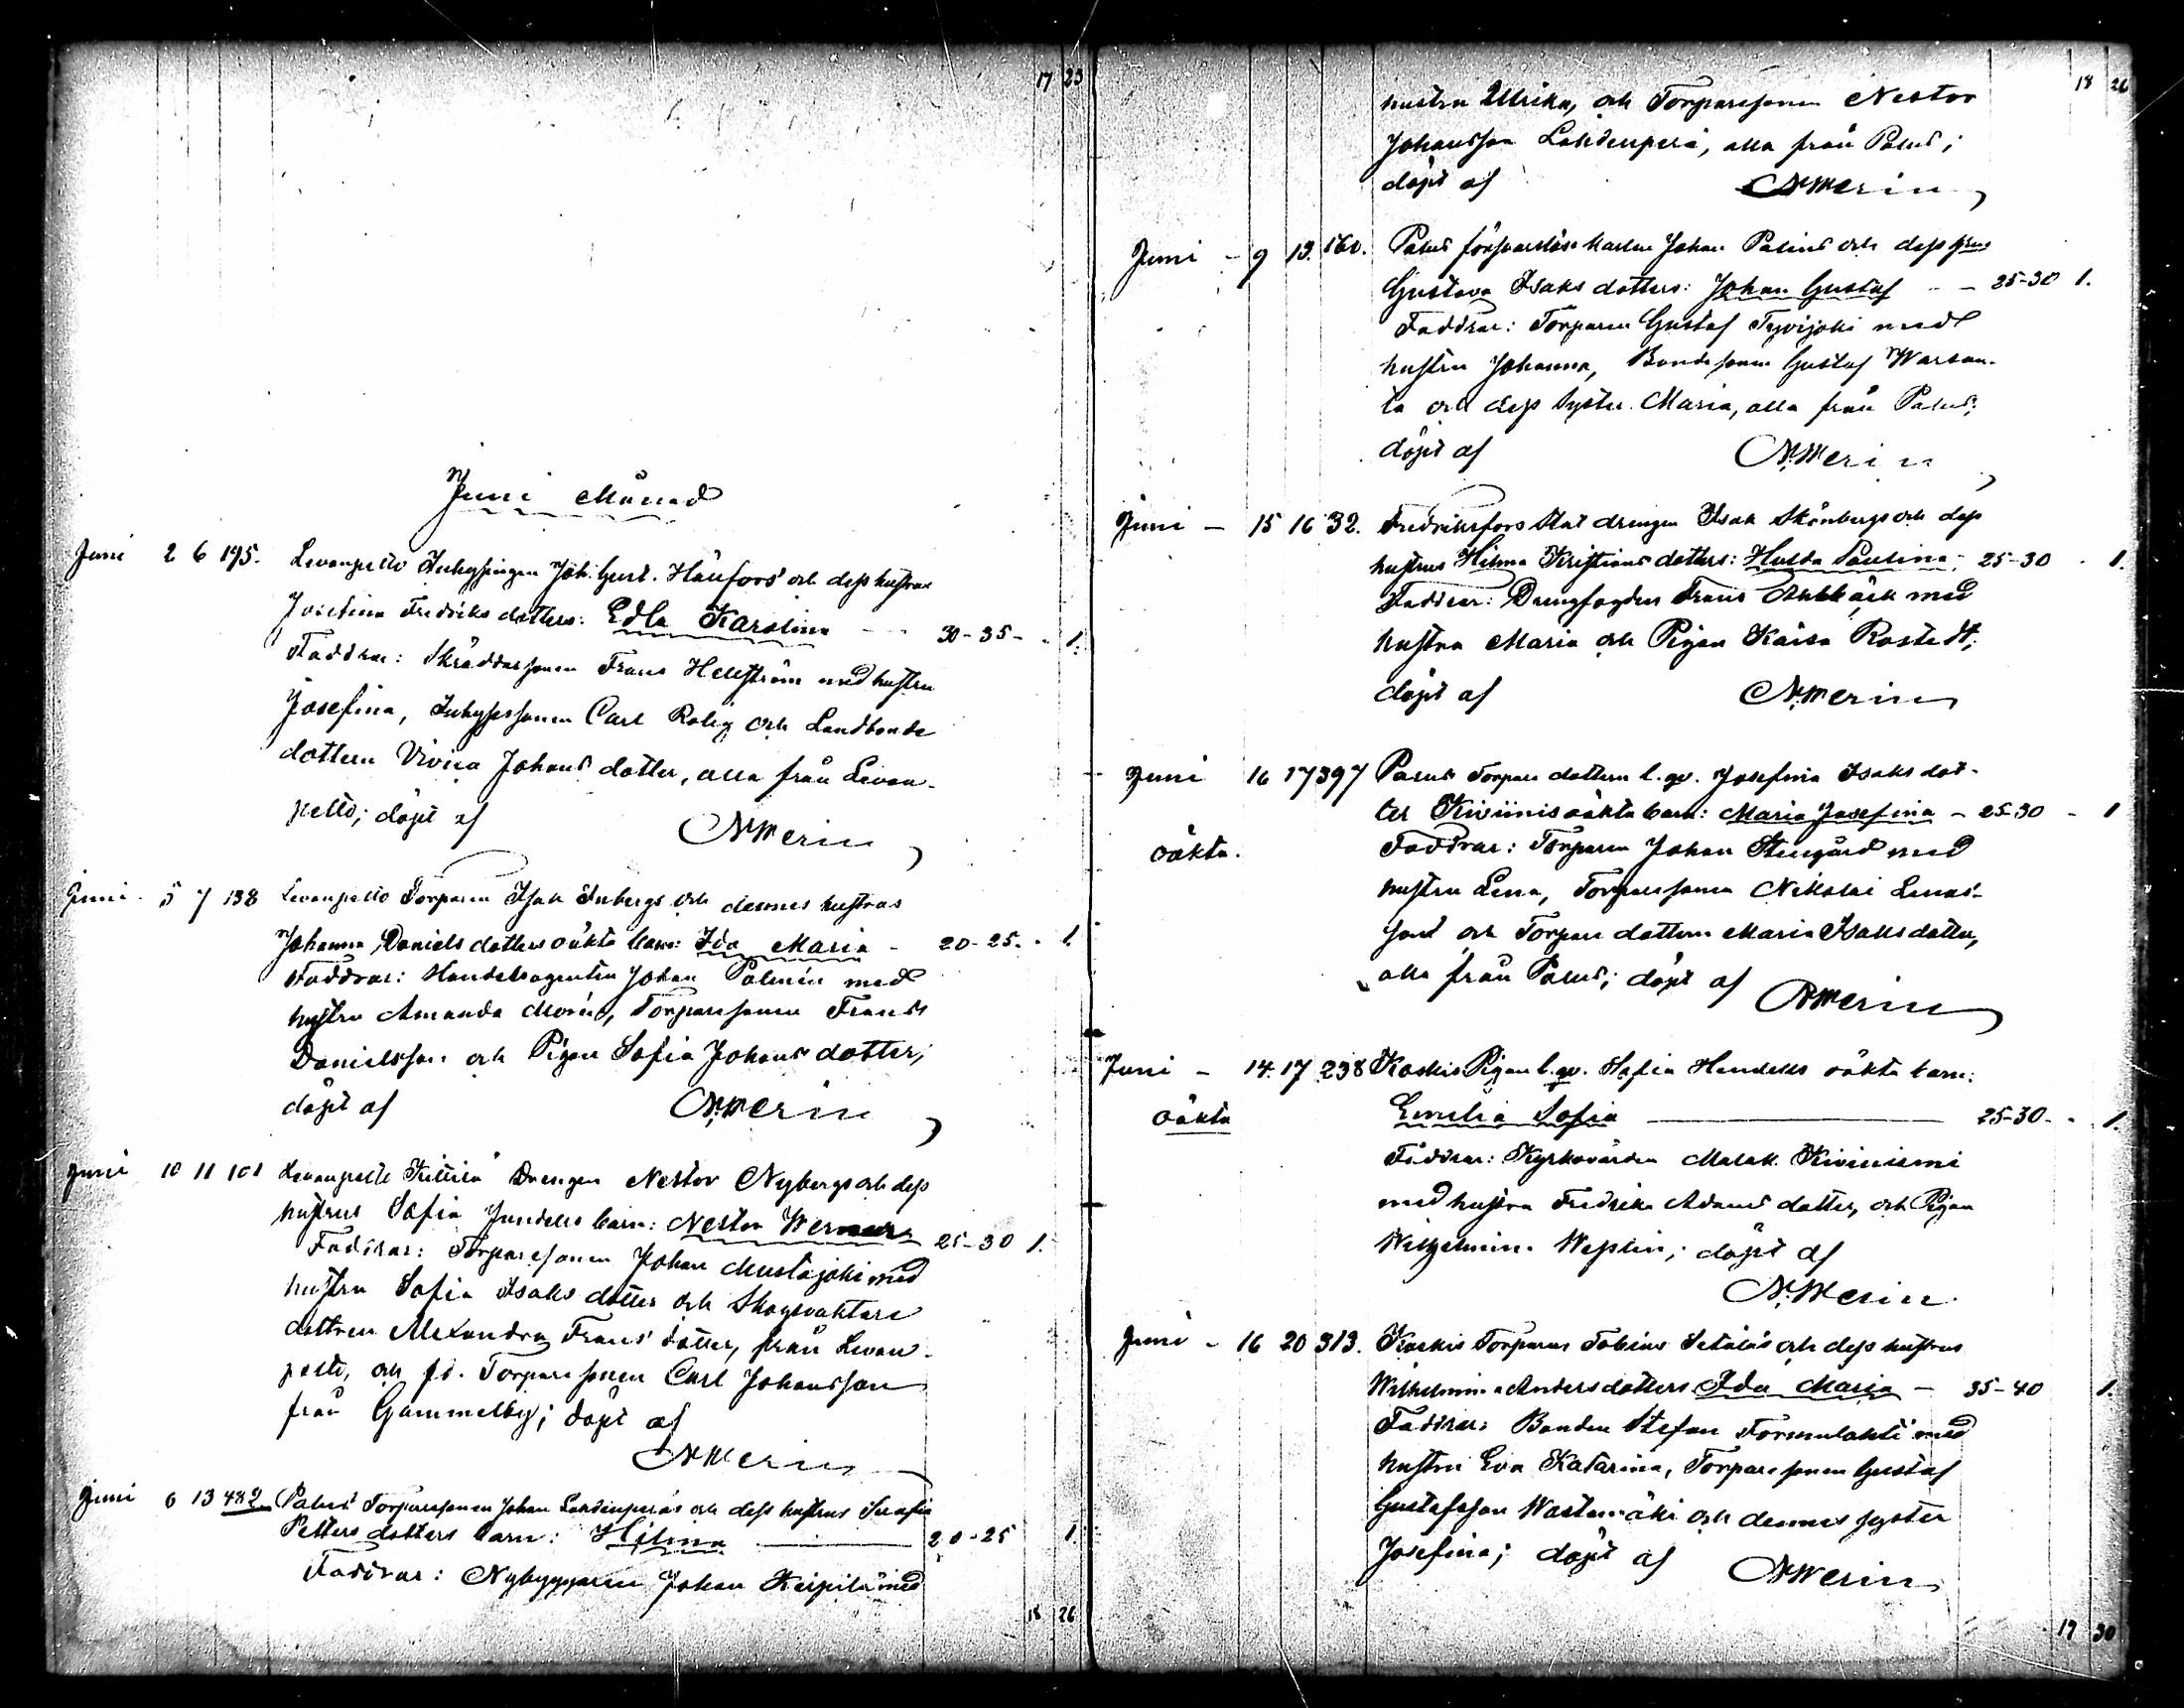 17 23
Juni Månad
Juni 2 6 195. Levanpelto Inhysingen Joh. Gust. Hänfors' och dess hustrus
Josefina Fredriks dotters: Edla Karolina - - 30-35- - 1.
Faddrar: Skräddarsonen Frans Hellström med hustru
Josefina, Inhysessonen Carl Rolig och Landbonde
dottern Vivica Johans dotter, alla från Levan-
pelto; döpt af N. Merin
Juni - 5 7 138 Levanpelto Torparen Isak Inbergs och dennes hustrus
Johanna Daniels dotters oäkta barn: Ida Maria - 20-25. - 1.
Faddrar: Handelsagenten Johan Palmén med
hustru Amanda Morén, Torparesonen Frans
Danielsson och Pigan Sofia Johans dotter;
döpt af N. Merin
Juni 10 11 101 Levanpelto Drengen Nestor Nybergs och dess
hustrus Sofia Jundells barn: Nestor Werner 25-30 1.
Faddrar: Torparesonen Johan Mustajoki med
hustru Sofia Isaks dotter och Skogvaktare
dottren Alexandra Frans dotter, från Levan-
pelto, och fd. Torparesonen Carl Johansson
från Gammelby; döpt af
N. Merin
Juni 6 13 482 Palus Torparesonen Johan Lahdenperäs och dess hustrus Serafia
Petters dotters barn: Hilma 20-25 1.
Faddrar: Nybyggaren Johan Keipilä med
18 26
18 26
hustru Ulrika, och Torparesonen Nestor
Johansson Lahdenperä, alla från Palus;
döpt af N. Merin
Juni - 9 13. 160. Palus försvarslöse karlen Johan Palins och dess hrus
Gustava Isaks dotters: Johan Gustaf - - 25-30 1.
Faddrar: Torparen Gustaf Tyvijoki med
hustru Johanna, Bondesonen Gustaf Warsan-
ta och dess syster Maria, alla från Palus;
döpt af N. Merin
Juni - 15 16 32. Fredriksfors Stat drengen Isak Skönbergs och dess
hustrus Hilma Kristians dotters: Hulda Paulina - 25-30 - 1.
Faddrar: Drengfogden Frans med
hustru Maria och Pigan Kaisa Rostedt;
döpt af N. Merin
Juni 16 17 397 Palus Torpare dottern l. qv. Josefina Isaks dot-
ter Kiviinis oäkta barn: Maria Josefina - 25-30 - 1
oäkta. Faddrar: Torparen Johan Stengård med
hustru Lena, Torparesonen Nikolai Lenas-
son och Torpare dottern Maria Isaks dotter,
alla från Palus; döpt af N. Merin
Juni - 14. 17 238 Kaskis Pigan l. qv. Sofia Hendells oäkta barn:
oäkta Emilia Sofia 25-30. - 1.
Faddrar: Kyrkovärden Malak. Kiviniemi
med hustru Fredrika Adams dotter, och Pigan
Wilhelmina Weslin; döpt af
N. Merin
Juni - 16 20 313. Kaskis Torparen Tobias Setäläs och dess hustrus
Wilhelmina Anders dotters Ida Maria - 35-40 1.
Faddrar: Bonden Stefan Tormulahti med
hustru Eva Katarina, Torparesonen Gustaf
Gustafsson Wastamäki och dennes syster
Josefina; döpt af N. Merin
19 30